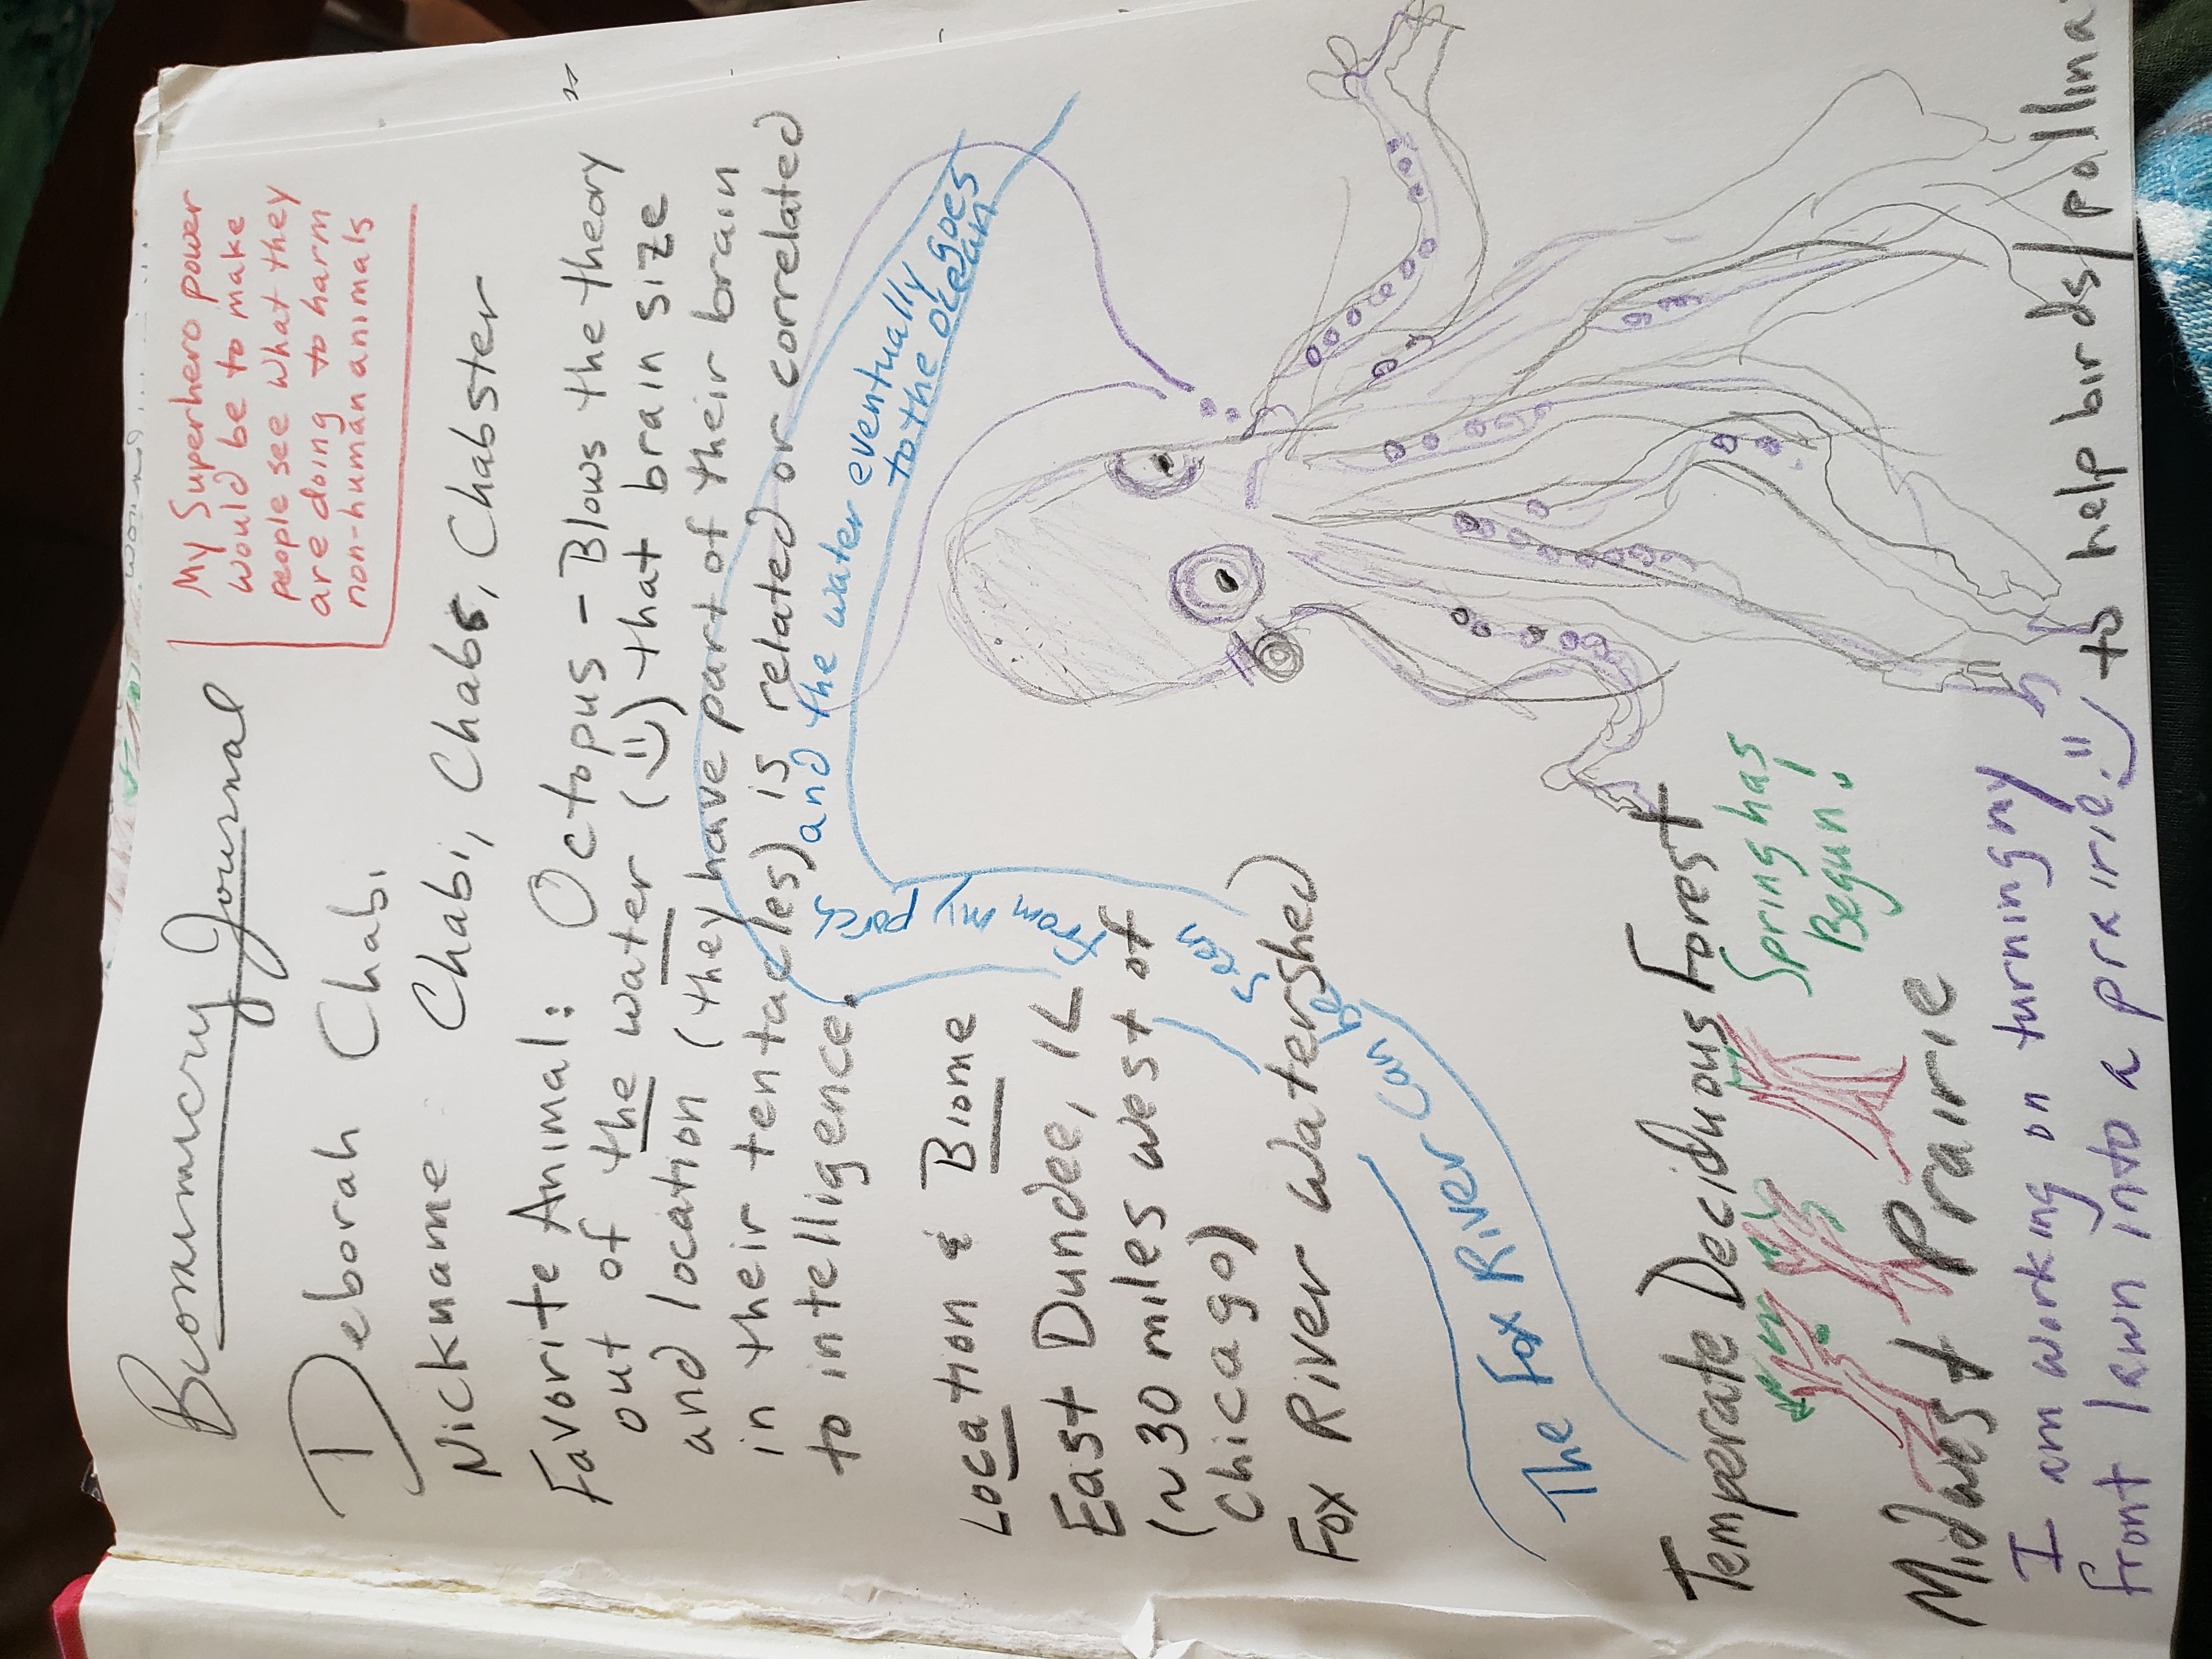 Biomimicry Journal
My Superhero power
would be to make
people see what they
are doing to harm
non-human animals
Deborah Chabi
Nickname: Chabi, Chabs, Chabster
Favorite Animal: Octopus - Blows the theory
out of the water (=)) that brain size
and location (they have part of their brain
in their tentacles) is related or correlated
to intelligence.
and the water eventually goes
to the ocean
Location & Biome
East Dundee, IL
(~30 miles west of
Chicago)
Fox River Watershed
The Fox River Can be seen from my
Temperate Deciduous Forest
Spring has
Begun!
Midwest Prairie
I am working on turning my
front lawn into a prairie =) to help birds/pollina